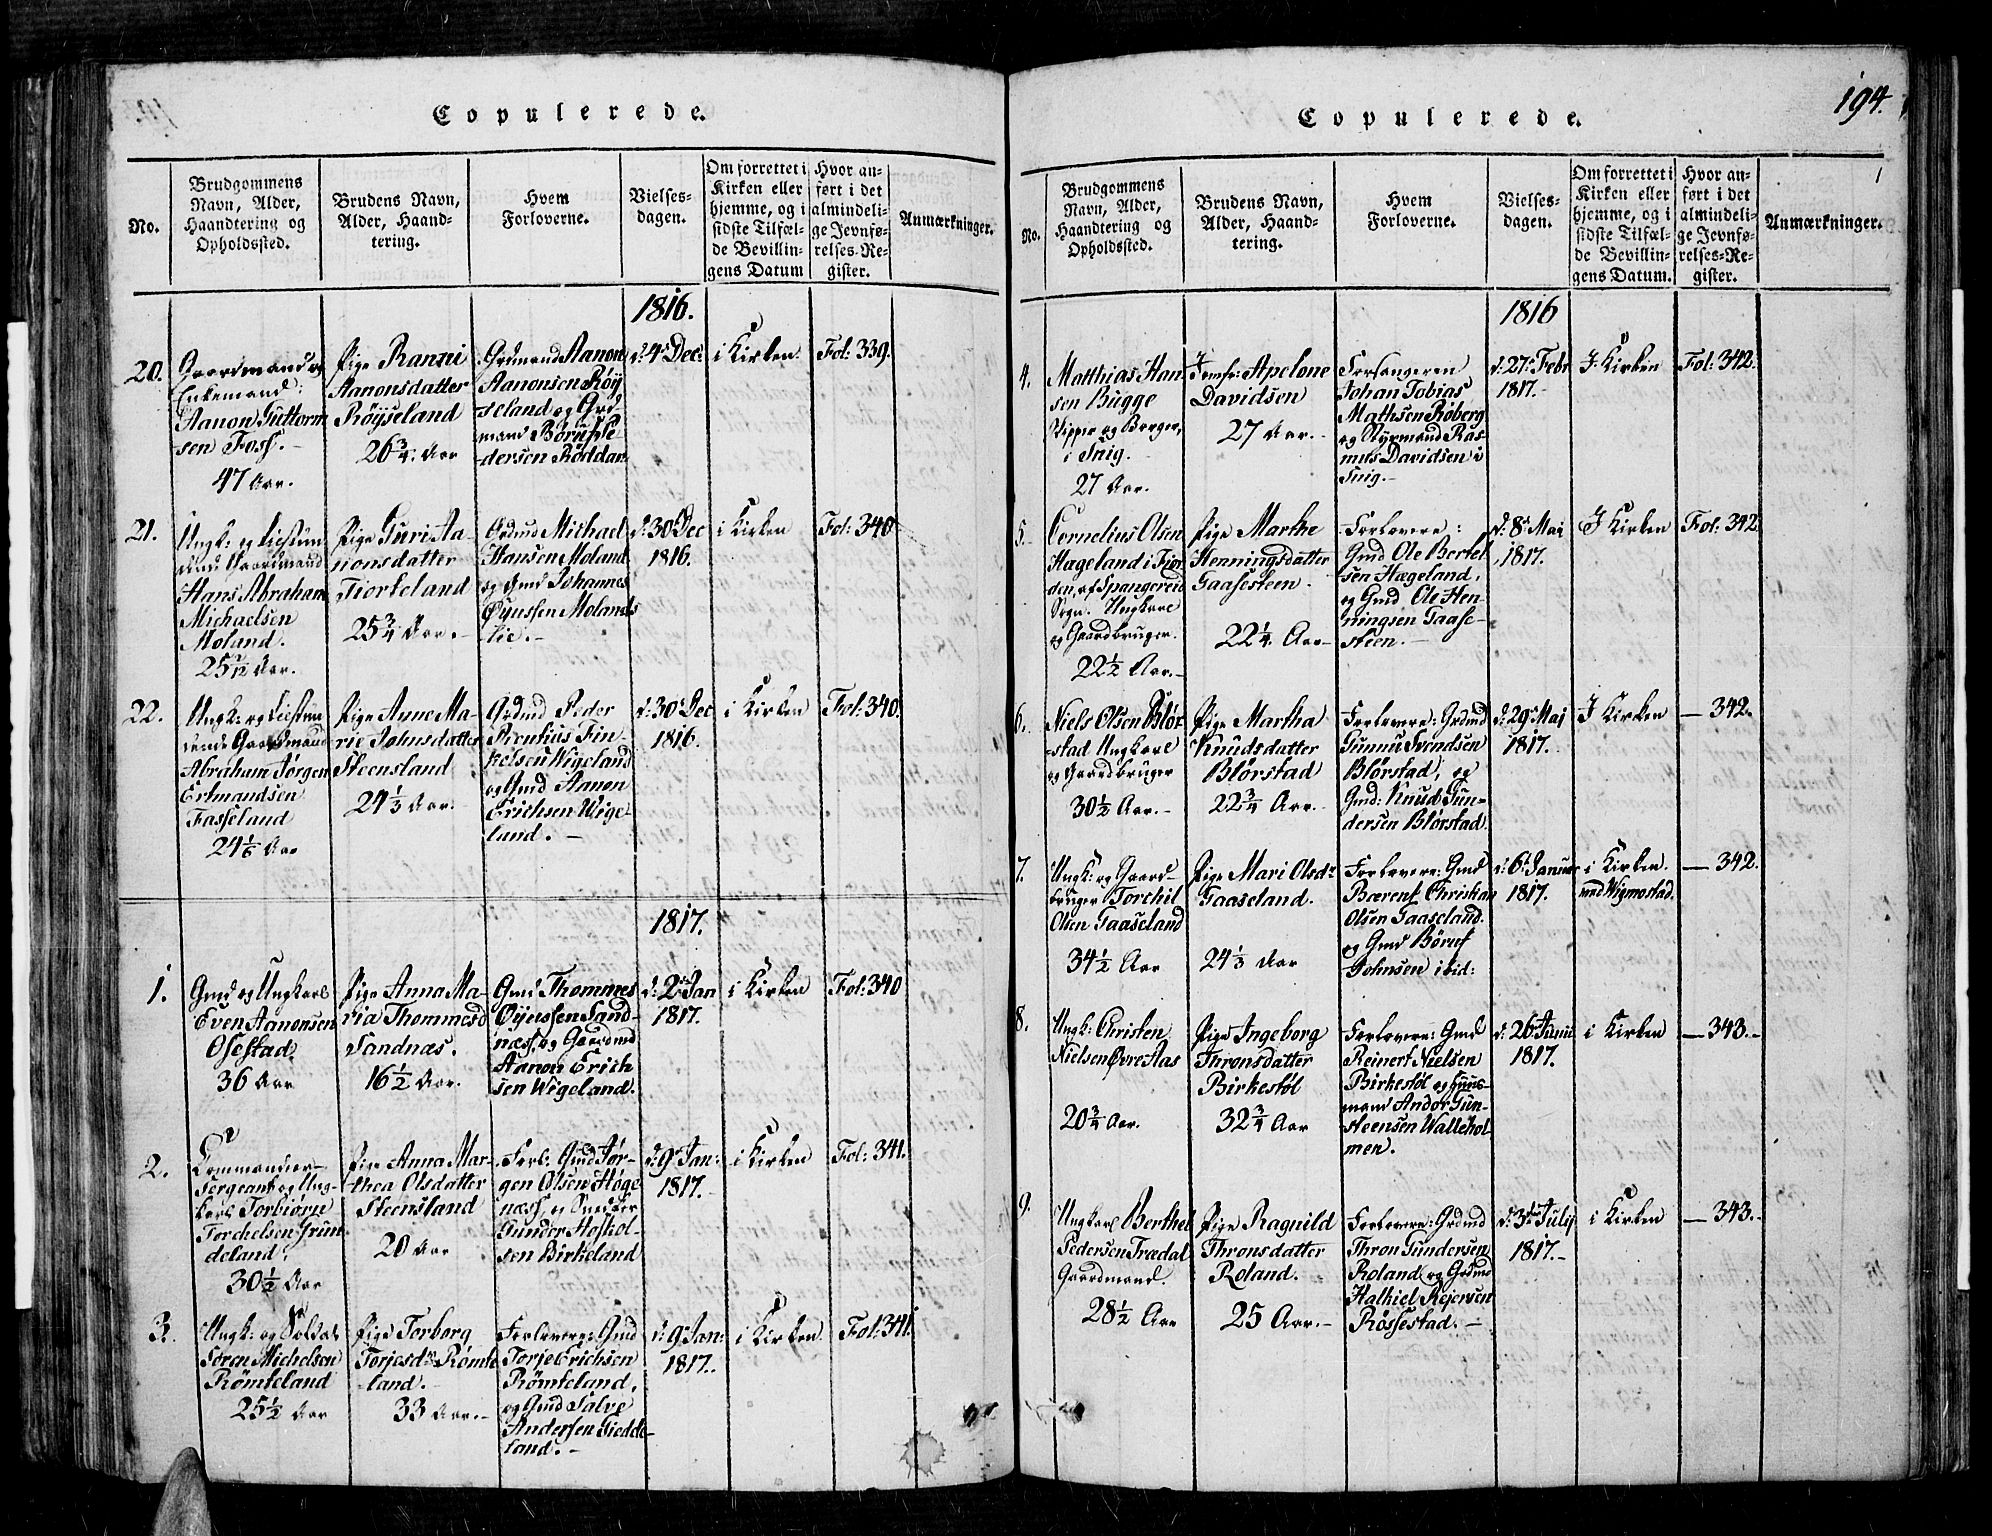 Copulerede.
No.
Brudgommens
Navn, Alder,
Haandtering og
Opholdssted.
Brudens Navn,
Alder, Haand-
tering.
Hvem
Forloverne.
Vielses-
dagen.
Om forrettet i
Kirken eller
hjemme, og i
sidste Tilfæl-
de Bevillin-
gens Datum
Hvor an-
ført i det
almindeli-
ge Jevnfø-
relses-Re-
gister.
Anmærkninger.
1816.
20.
Gaardmand og
Enkemand:
Aanon Guttorm
sen Foss. -
47 Aar.
Pige Ranni
Aanonsdatter
Röyseland
26 3/4. Aar
Grdmand Aanon
Aanonsen Röy
seland og Grd
mand Börufs Pe
dersen Röddan
d: 4 Dec:
i Kirken.
Fol: 339.
21.
Ungk: og
Gaardmand
Hans Abraham
Michaelsen
Moland.
25 Aar.
Pige Guri Aa-
nonsdatter
Fiorkeland
25 3/4 Aar. -
Grdmd Michael
Hansen Moland
og Gmd Johannes
Öyussen Molands
lie. -
d: 30 Dec
1816.
i Kirken
Fol: 340
22.
Ungk: og
Gaardmand
Abraham Jörgen
Ertmandsen
Fasseland
24 1/6 Aar
Pige Anne Ma-
rie Johnsdatter
Steensland
24 1/3 Aar.
Grdmd Peder
Fin-
kelsen Wigeland
og Gmd Aanon
Erichsen Wige-
land. -
d: 30 Dec
1816.
i Kirken
Fol: 340.
1817.
1.
Gmd og Ungkarl
Even Aanonsen
Osestad
36 Aar
Pige Anna Ma-
ria Thommesd
Sandnæs.
16 1/2 Aar.
Gmd Thommes
Oyussen Sand-
næss, og Gaardmd
Aanon Erich
sen Wigeland.
d: 2 Jan
1817.
i Kirken
Fol: 340
2.
Commandeer-
Sergeant og Ung-
karl Torbiörn
Torchelsen Grun
deland,
30 1/2 Aar
Pige Anna Mar-
thea Olsdatter
Steensland
20 Aar
Forl: Gmd Jör-
gen Olsen Höge
næss, og Snedker
Gunder Hoskol-
sen Birkeland
d: 9 Jan:
1817.
i Kirken
Fol: 341.
3.
Ungk: og Soldat
Sören Michelsen
Römteland
25 1/2 Aar
Pige Torborg
Torjesdr Römte
land.
33 Aar. -
Forlovere: Gmd
Torje Erichsen
Römteland,
og Gmd Salve
Andersen Giedde-
land. -
d: 9 Jan:
1817.
i Kirken.
Fol: 341.
Copulerede.
194.
No.
Brudgommens
Navn, Alder,
Haandtering og
Opholdssted.
Brudens Navn,
Alder, Haand-
tering.
Hvem
Forloverne.
Vielses-
dagen.
Om forrettet i
Kirken eller
hjemme, og i
sidste Tilfæl-
de Bevillin-
gens Datum.
Hvor an-
ført i det
almindeli-
ge Jevnfø-
relses-Re-
gister.
Anmærkninger.
1816
4.
Matthias Han
sen Bugge
Skipper og Borger,
i Snig. -
27 Aar.
Jomfr: Apelone
Davidsen
27 Aar. -
Forsangeren
Johan Tobias
Mathsen Röberg
og Styrmand Ras-
mus Davidsen i
Snig. -
d: 27 Febr
1817. -
I Kirken
Fol: 342.
5
Cornelius Olsen
Hægeland i Fior
den, af Spangereid
Sogn. Ungkarl
og Gaardbruger.
22 1/2 Aar. -
Pige Marthe
Henningsdatter
Gaasesteen.
22 1/4. Aar -
Forlovere:
Gmd Ole Bertel
sen Hægeland,
og Gmd Ole Hen-
ningsen Gaase-
steen. -
d: 8 Mai
1817.
I Kirken
Fol: 342
6.
Niels Olsen Blör
stad Ungkarl
og Gaardbruger
30 1/2 Aar. -
Pige Martha
Knudsdatter
Blörstad
22 3/4 Aar.
Forlovere: Grdmd
Gunnu Svendsen
Blörstad, og
Gmd: Knud Gun-
dersen Blörstad.
d: 29 Mai
1817. -
I Kirken
- 342.
7.
Ungk: og Gaard-
bruger Torchil
Olsen Gaaseland
34 1/2 Aar
Pige Mari Olsdr
Gaaseland.
24 1/3 Aar
Forlovere: Gmd
Bærent Christian
Olsen Gaaseland.
og Gmd Böruf
Johnsen ibid:
d: 6 Januar
1817.
i Kirken.
ved Wigmostad.
- 342.
8.
Ungk: Christen
Nielsen Övre Aas
20 3/4 Aar.
Pige Ingeborg
Thronsdatter
Birkestöl
32 3/4 Aar
Forlovere: Gmd
Reinert Nielsen
Birkestöl og Huus-
mand Andor Gun-
steensen Wallehol-
men.
d: 26 Juni
1817.
i Kirken
- 343. -
9.
Ungkarl Berthel
Pedersen Trædal
Gaardmand.
28 1/2 Aar
Pige Ragnild
Thronsdatter
Roland.
25 Aar. -
Forlovere: Grdmd
Thron Gundersen
Roland og Grdmd
Hathiel Rejersen
Rossestad. -
d: 3die July
1817. -
i Kirken
- 343. -